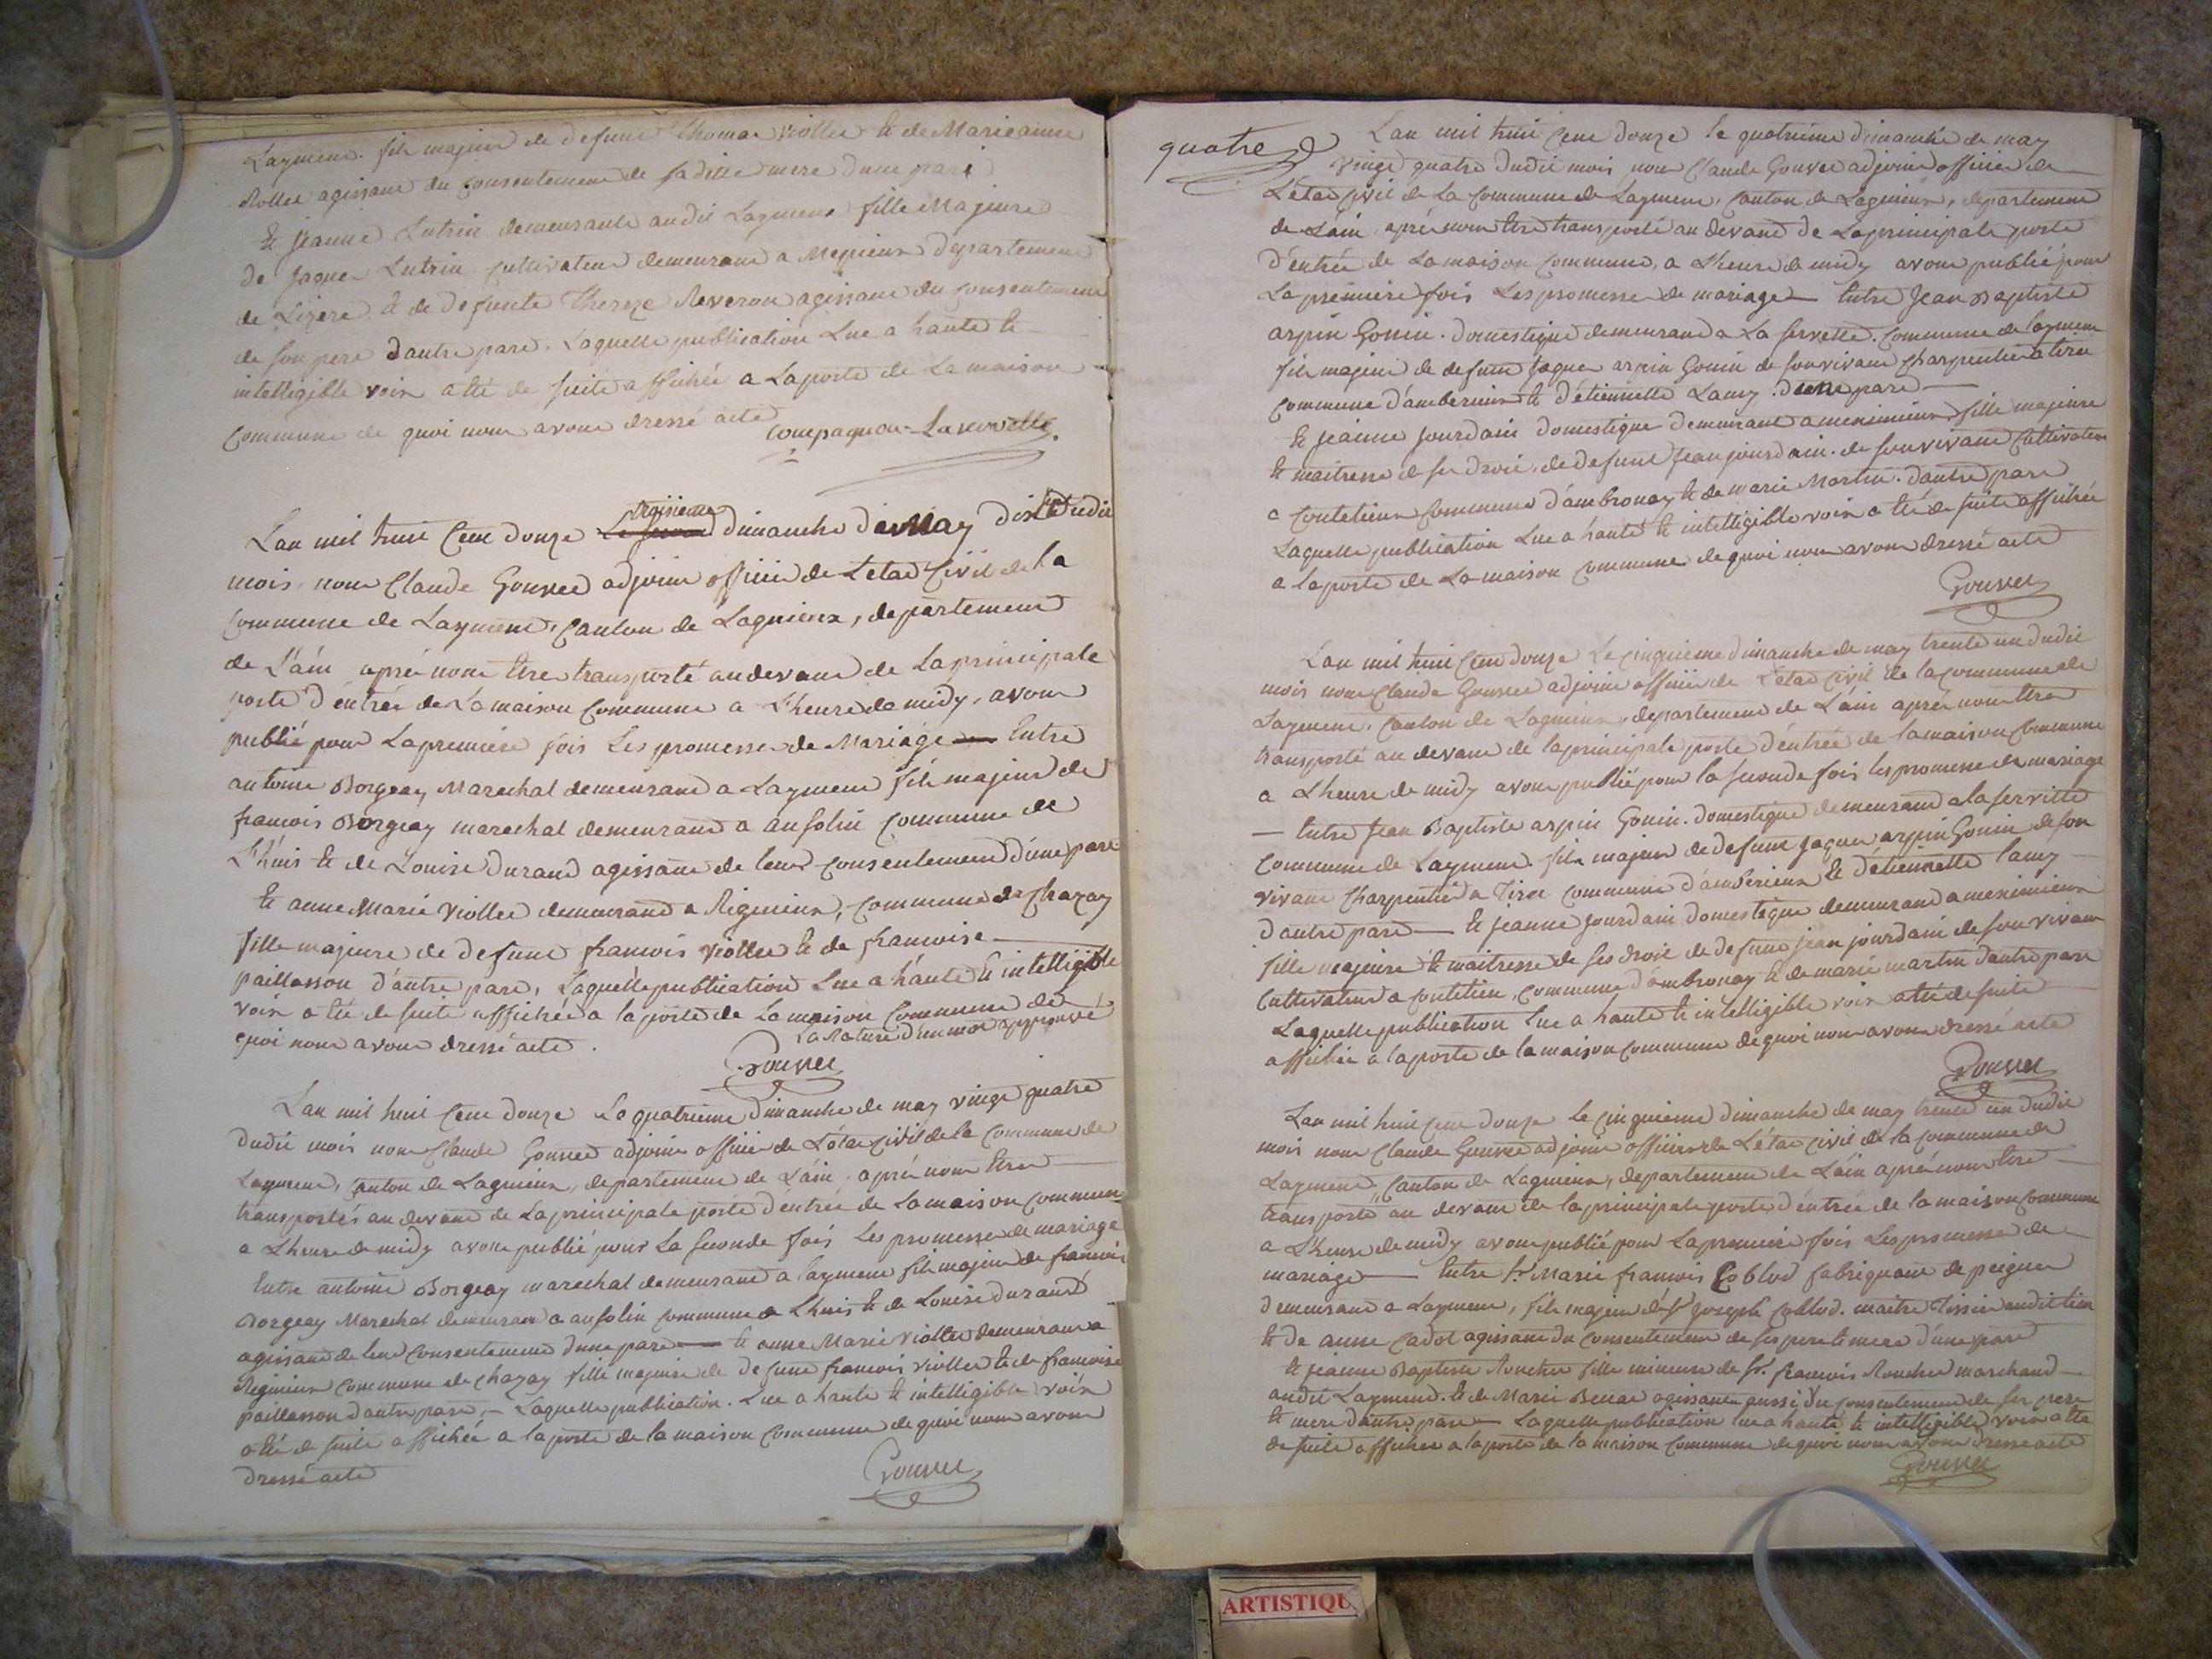 Laymene. fils majeur de defunt thomas viollet et de Marieanne
Rollet agissant du consentement de sa ditte mere d'une part
et jeanne Lutrin demeurante audit Laymene fille Majeure
de jaque Lutrin cultivateur demeurant a Mepieux departement
de Lizere et de defunte thereze Reveron agissant du consentement
de son pere dautre part. Laquelle publication Lue a haute et
intelligible voix a été de suite affichée a La porte de La maison
commune de quoi nous avons dressé acte
Compagnon
Lan mil huit Cent douze Le troisieme dimanche de May dix sept dudit
mois. nous Claude Gouvet adjoint officier de L'etat Civil de la
commune de Laymene, Canton de Lagnieux, departement
de L'ain après nous être transporté au devant de La principale
porte d'entrée de La maison Commune a L'heure de midy, avons
publié pour La premiere fois Les promesses de Mariage Entre
antoine Borgeay Marechal demeurant a Laymene fils majeur de
francois Borgeay marechal demeurant a ansolin commune de
L'huis et de Louise Durand agissant de leur consentement d'une part
et anne Marie Viollet demeurant a Rigneux, commune de Chazay
fille majeure de defunt francois Viollet et de francoise
paillasson d'autre part, Laquelle publication Lue a haute et intelligible
voix a été de suite affichée a la porte de La maison Commune de
quoi nous avons dressé acte. La rature d'un mot approuvé
Gouvet
Lan mil huit Cent douze Le quatrieme dimanche de may vingt quatre
dudit mois nous Claude Gouvet adjoint officier de L'état civil de la Commune de
Laymene, Canton de Lagnieux, departement de L'ain, après nous être
transportés au devant de La principale porte d'entrée de La maison commune
a L'heure de midy avons publié pour La seconde fois Les promesses de mariage
Entre antoine Borgeay marechal demeurant a laymene fils majeur de francois
Borgeay Marechal demeurant a ansolin commune a Lhuis et de Louise durand
agissant de leur consentement d'une part et anne Marie Viollet demeurant a
Rigneux commune de Chazay fille majeure de defunt francois Viollet et de francoise
paillasson d'autre part, Laquelle publication. Lue a haute et intelligible voix
a été de suite affichée a la porte de la maison commune de quoi nous avons
dressé acte
Gouvet
quatre
Lan mil huit Cent Douze le quatrieme dimanche de may
vingt quatre dudit mois nous Claude Gouvet adjoint officier de
L'état civil de La commune de Laymene, Canton de Lagnieux, departement
de L'ain, après nous être transporté au devant de La principale porte
d'entrée de La maison Commune, a L'heure de midy avons publié pour
La premiere fois Les promesse de mariage Entre Jean Baptiste
arpin Gonin. domestique demeurant a La servette. Commune de laymene
fils majeur de defunt Jaque arpin Gonin de son vivant Charpentier a tiret
commune d'amberieux et d'étiennette Lamy d'une part
et jeanne jourdain domestique demeurant a meximieux, fille majeure
et maitresse de ses droit. de defunt jean jourdain. de son vivant Cultivateur
a coutelieux Commune d'ambronay et de marie Martin. dautre part
Laquelle publication Lue a haute et intelligible voix a été de suite affichée
a la porte de La maison commune de quoi nous avons dressé acte
Gouvet
Lan mil huit Cent douze Le cinquieme dimanche de may trente un dudit
mois nous Claude Gouvet adjoint officier de L'état civil de la commune de
Laymene, Canton de Lagnieux, departement de L'ain après nous être
transporté au devant de la principale porte d'entrée de la maison Commune
a L'heure de midy avons publié pour la seconde fois les promesse de mariage
Entre Jean Baptiste arpin Gonin. domestique demeurant a la servette
commune de Laymene. fils majeur de defunt jaque arpin Gonin de son
vivant Charpentier a Tiret commune d'amberieux et d'étiennette lamy
d'autre part et jeanne jourdain domestique demeurant a meximieux
fille majeure et maitresse de ses droit de defunt jean jourdain de son vivant
Cultivateur a coutelieu, commune d'ambronay et de marie martin dautre part
Laquelle publication lue a haute et intelligible voix a été de suite
affichée a la porte de la maison commune de quoi nous avons dressé acte
Gouvet
Lan mil huit Cent douze le cinquieme dimanche de may trente un dudit
mois nous Claude Gouvet adjoint officier de L'état civil de la commune de
Laymene, Canton de Lagnieux, departement de L'ain après nous être
transporté au devant de la principale porte d'entrée de la maison commune
a L'heure de midy avons publié pour La premiere fois Les promesse de
mariage Entre sr. Marie francois Collod fabriquant de peigne
demeurant a Laymene, fils majeur de sr Joseph Collod. maitre Tissier audit lieu
et de anne Cadot agissant du consentement de ses pere et mere d'une part
et jeanne Baptiste Ronchet fille mineure de sr. francois Ronchet marchand
audit Laymene. et de Marie agissant aussi du consentement de ses pere
et mere d'autre part Laquelle publication lue a haute et intelligible voix a été
de suite affichée a la porte de la maison commune de quoi nous avons dressé acte
Gouvet
ARTISTIQU